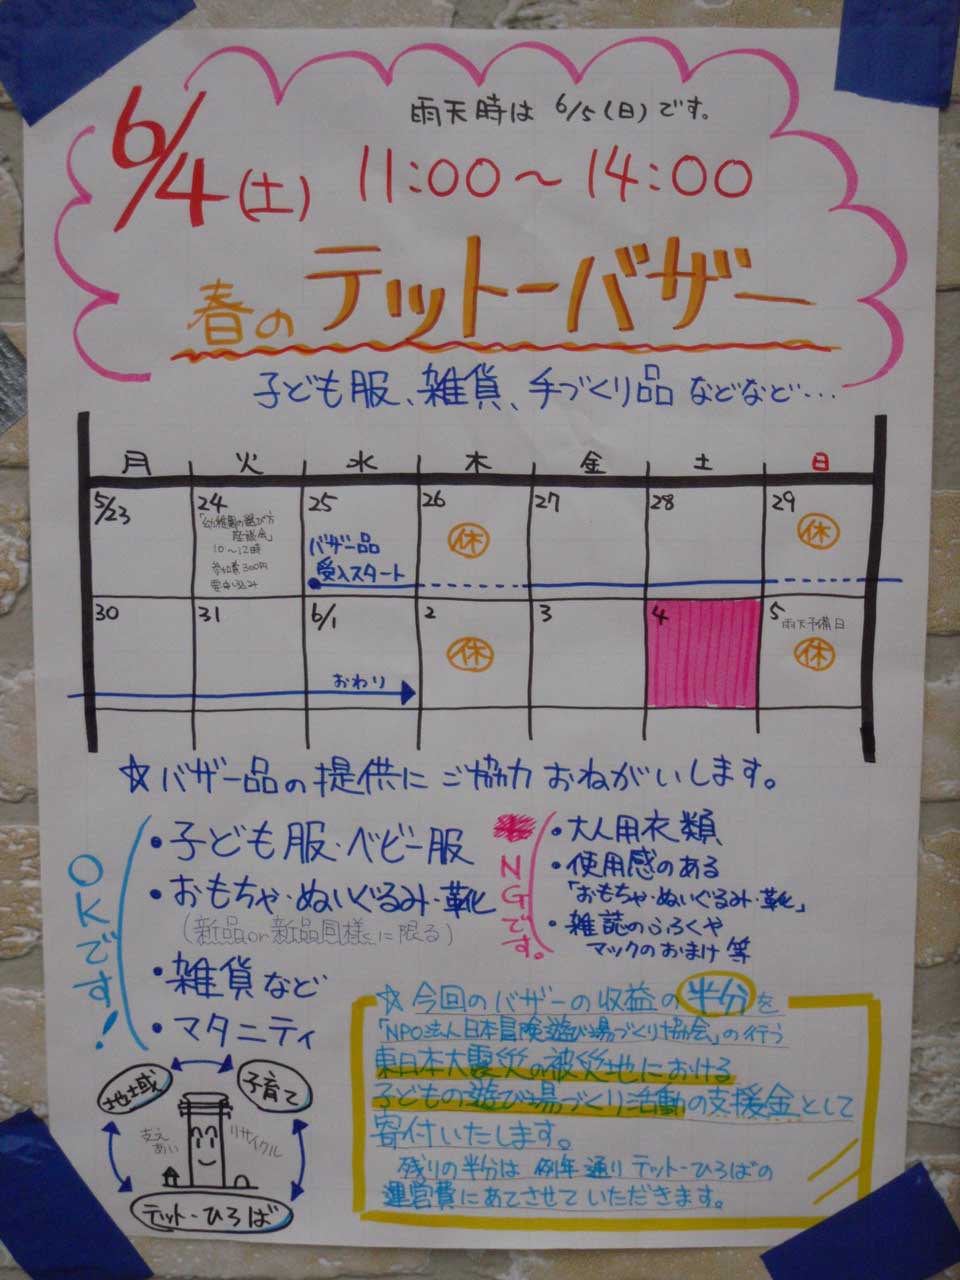 雨天時は 6/5(日)です。
6/4(土) 11:00～14:00
春の テットーバザー
子ども服、雑貨、手づくり品 などなど…
月 火 水 木 金 土 日
5/23 24 25 26 27 28 29
「幼稚園の遊び方
座談会」
10～12時
参加費300円
要申し込み
バザー品
受入スタート
休
休
30 31 6/1 2 3 4 5
雨天予備日
おわり
休
休
☆バザー品の提供にご協力おねがいします。
OKです!
・子ども服・ベビー服
・おもちゃ・ぬいぐるみ・靴
(新品or新品同様に限る)
・雑貨など
・マタニティ
NGです。
・大人用衣類
・使用感のある
「おもちゃ・ぬいぐるみ・靴」
・雑誌のふろくや
マックのおまけ等
☆今回のバザーの収益の半分を
「NPO法人日本冒険遊び場づくり協会」の行う
東日本大震災の被災地における
子どもの遊び場づくり活動の支援金として
寄付いたします。
残りの半分は 例年通り テットーひろばの
運営費にあてさせていただきます。
地域
子育て
支え
あい
リサイクル
テットーひろば